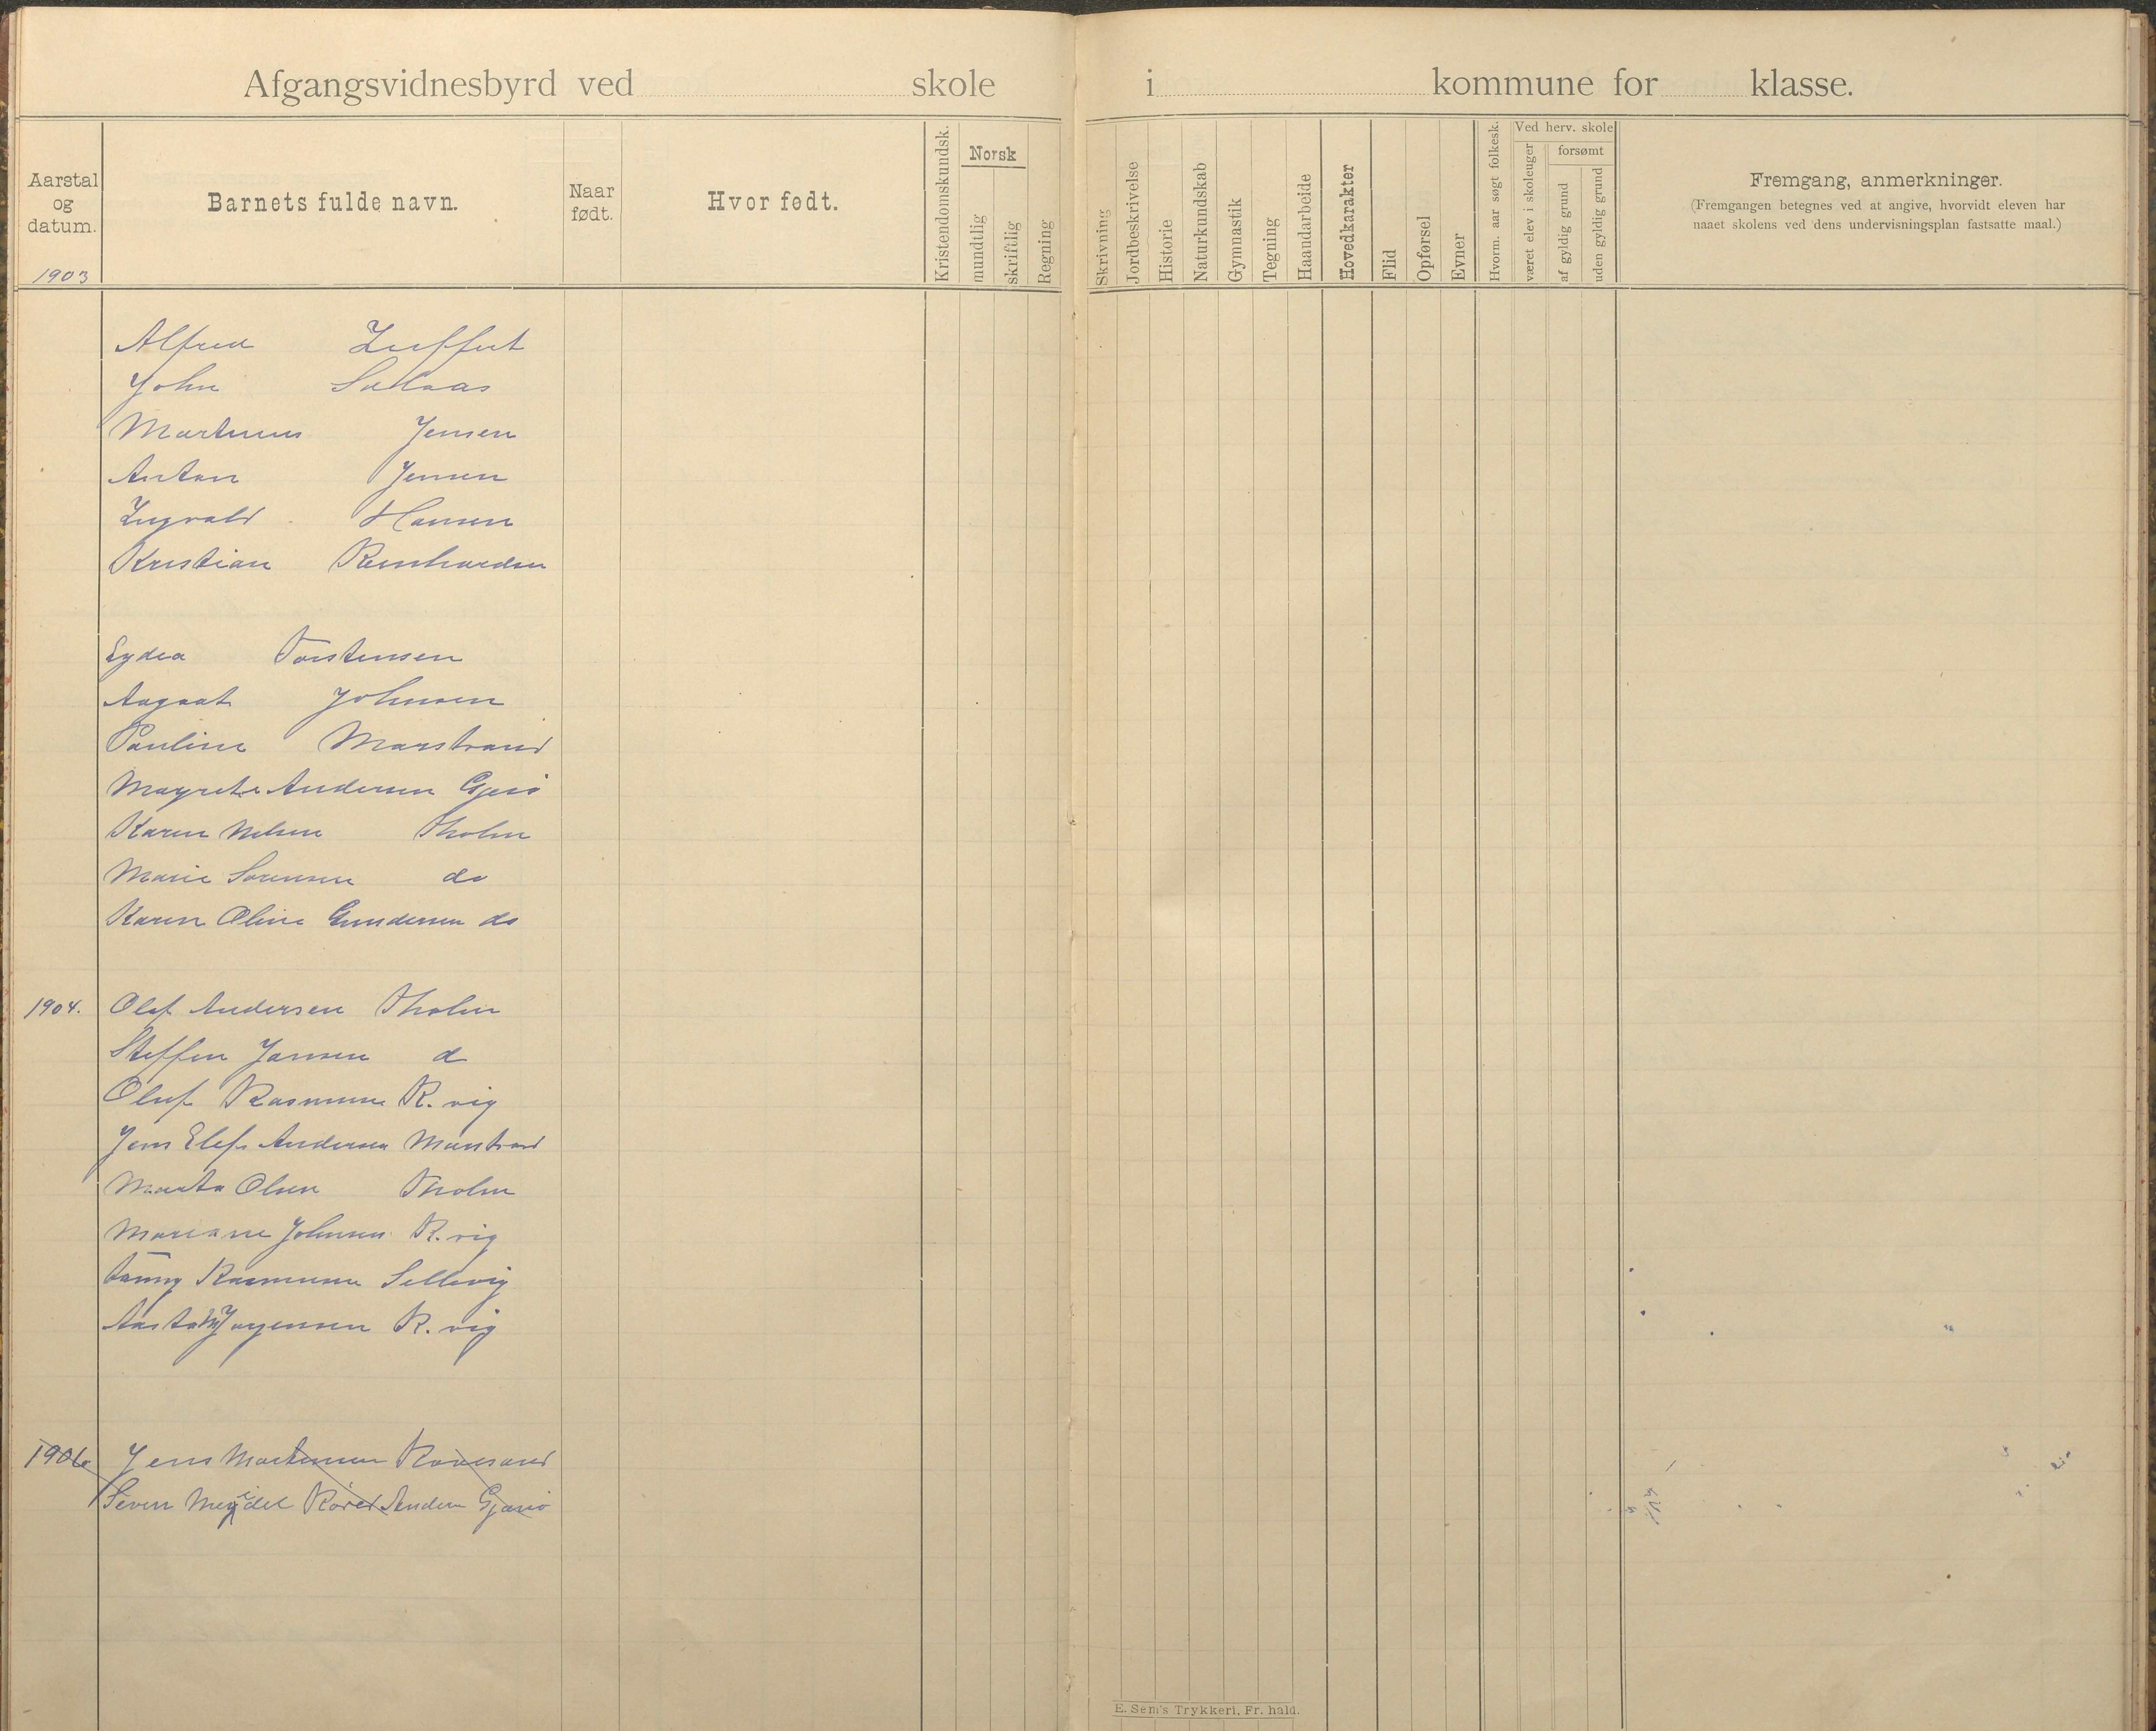 Afgangsvidnesbyrd ved skole i kommune for klasse.
Aarstal og datum.
Barnets fulde navn.
Naar født.
Hvor født.
Kristendomskundsk.
Norsk
mundtlig
skriftlig
Regning
Skrivning
Jordbeskrivelse
Historie
Naturkundskab
Gymnastik
Tegning
Haandarbeide
Hovedkarakter
Flid
Opførsel
Evner
Hvorm. aar søgt folkesk.
Ved herv. skole
været elev i skoleuger
forsømt
af gyldig grund
uden gyldig grund
Fremgang, anmerkninger.
(Fremgangen betegnes ved at angive, hvorvidt eleven har
naaet skolens ved dens undervisningsplan fastsatte maal.)
1903
Alfred
John
Martinius Jensen
Anton Jensen
Ingvald Hansen
Kristian Reinhardsen
Lydia Torstensen
Aagaat Johnsen
Pauline Marstrand
Magrete Andersen Gjesø
Karen Nilsen Tholm
Marie Sørensen do
Karen Oline Gundersen do
1904. Olaf Andersen Tholm
Steffen Jansen d
Oluf Rasmussen R. vig
Jens Elef Andersen Marstrand
Marta Olsen Tholm
Mariane Johnsen R. vig
Fanny Rasmussen Sellevig
Aasta M Jørgensen R. vig
1906 Jens Martinsen
Severin Andersen Gjæsø
E. Sem's Trykkeri, Fr. hald.